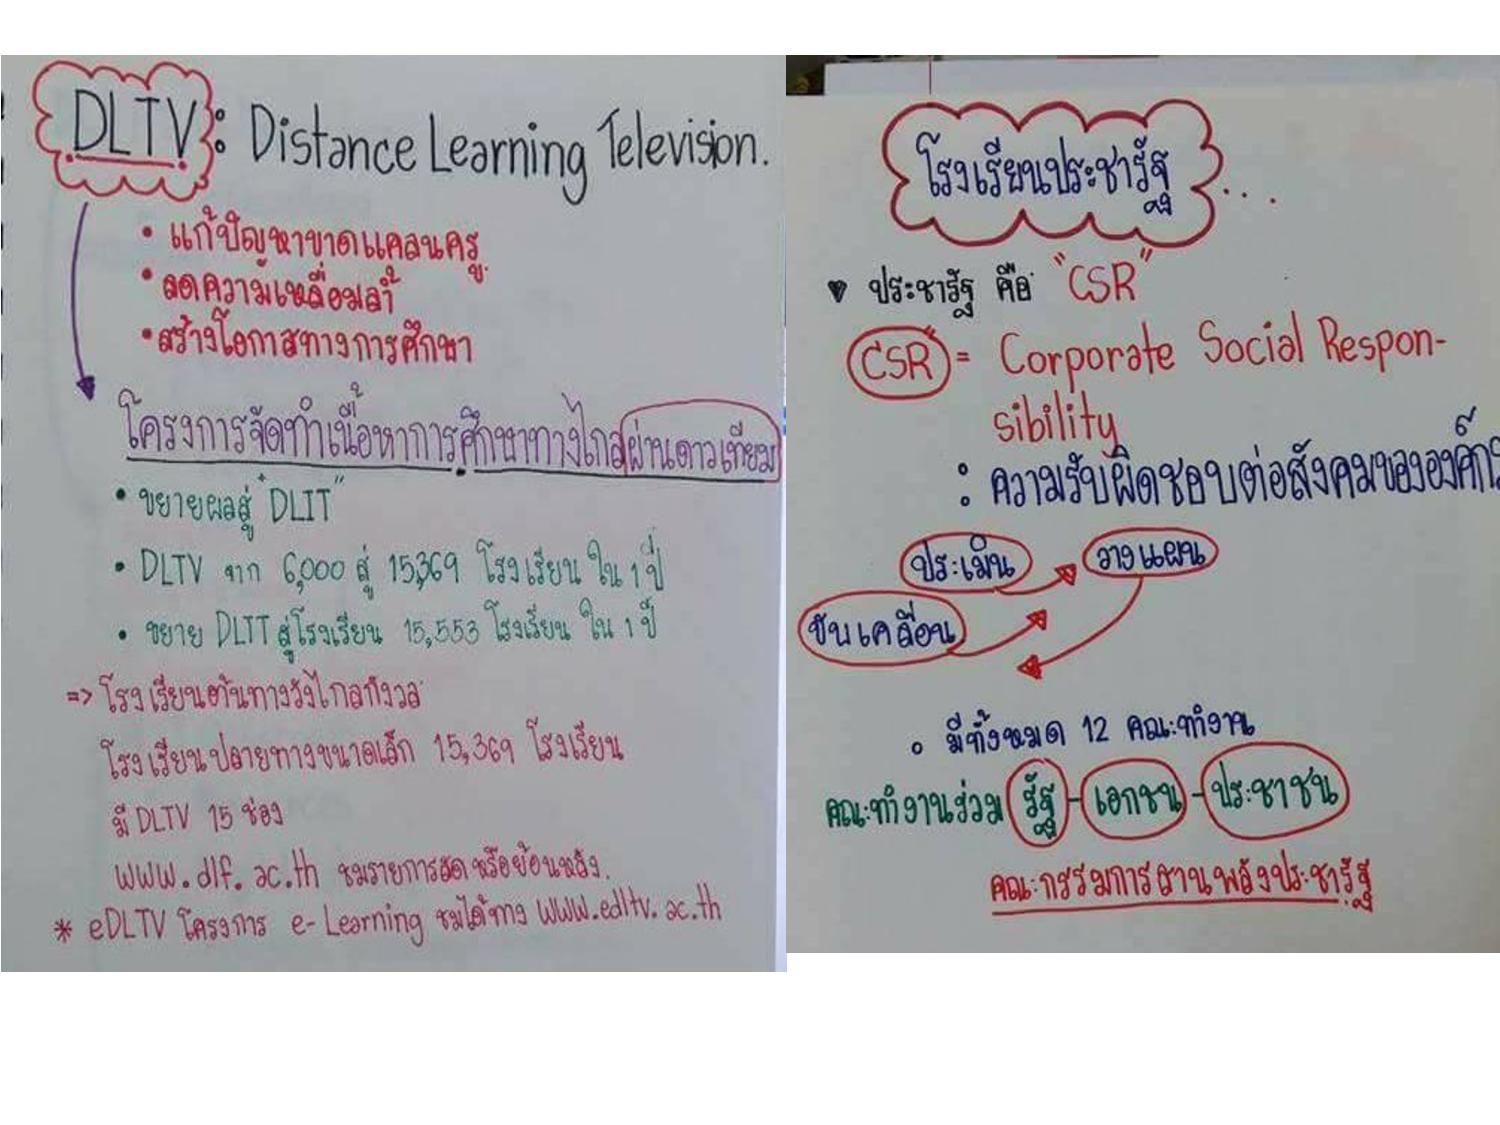 DLTV : Distance Learning Television.
• แก้ปัญหาขาดแคลนครู
• ลดความเหลื่อมล้ำ
• สร้างโอกาสทางการศึกษา
โครงการจัดทำเนื้อหาการศึกษาทางไกลผ่านดาวเทียม
• ขยายผลสู่ "DLIT"
• DLTV จาก 6,000 สู่ 15,369 โรงเรียน ใน 1 ปี
• ขยาย DLIT สู่โรงเรียน 15,553 โรงเรียน ใน 1 ปี
=> โรงเรียนต้นทางวังไกลกังวล
โรงเรียนปลายทางขนาดเล็ก 15,369 โรงเรียน
มี DLTV 15 ช่อง
www.dlf.ac.th ชมรายการสดหรือย้อนหลัง.
* eDLTV โครงการ e-Learning ชมได้ทาง www.edltv.ac.th
โรงเรียนประชารัฐ...
♥ ประชารัฐ คือ "CSR"
CSR = Corporate Social Respon-
sibility
: ความรับผิดชอบต่อสังคมขององค์กร
ประเมิน วางแผน
ขับเคลื่อน
• มีทั้งหมด 12 คณะทำงาน
คณะทำงานร่วม รัฐ - เอกชน - ประชาชน
คณะกรรมการสานพลังประชารัฐ